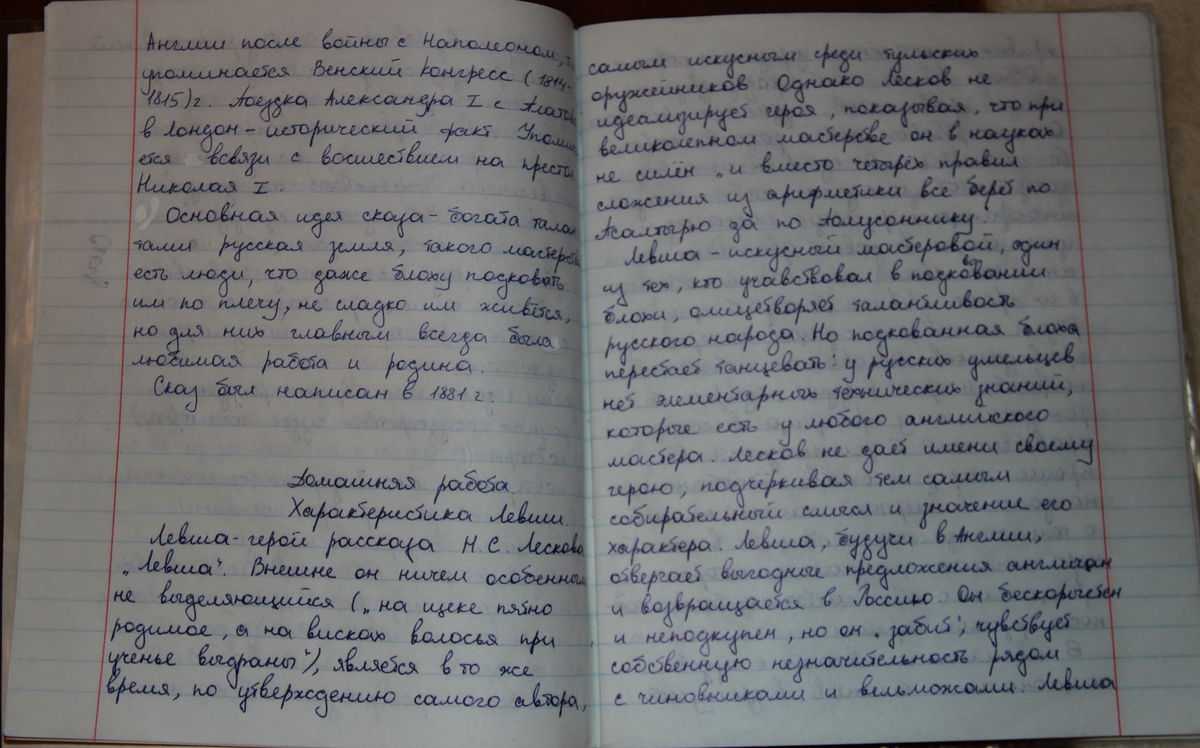 Англии после войны с Наполеоном,
упоминается Венский конгресс (1814-
1815)г. Поездка Александра I с Платов
в Лондон - исторический факт Упомин
ется всвязи с восшествием на престол
Николая I.
Основная идея сказа - богата талан
тами русская земля, такого мастерства
есть люди, что даже блоху подковать
им по плечу, не сладко им живётся,
но для них главным всегда была
любимая работа и родина.
Сказ был написан в 1881 г.
Домашняя работа.
Характеристика Левши.
Левша - герой рассказа Н.С. Лескова
„Левша". Внешне он ничем особенным
не выделяющийся („на щеке пятно
родимое, а на висках волосья при
ученье выдраны"), является в то же
время, по утверждению самого автора,
самым искусным среди тульских
оружейников Однако Лесков не
идеализирует героя, показывая, что при
великолепном мастерстве он в науках
не силён „и вместо четырёх правил
сложения из арифметики все берёт по
Псалтырю да по Полусоннику.
Левша - искусный мастеровой, один
из тех, кто учавствовал в подковывании
блохи, олицетворяет талантливость
русского народа. Но подкованная блоха
перестает танцевать: у русских умельцев
нет элементарных технических знаний,
которые есть у любого английского
мастера. Лесков не дает имени своему
герою, подчёркивая тем самым
собирательный смысл и значение его
характера. Левша, будучи в Англии,
отвергает выгодные предложения англичан
и возвращается в Россию. Он бескорыстен
и неподкупен, но он „забит", чувствует
собственную незначительность рядом
с чиновниками и вельможами. Левша